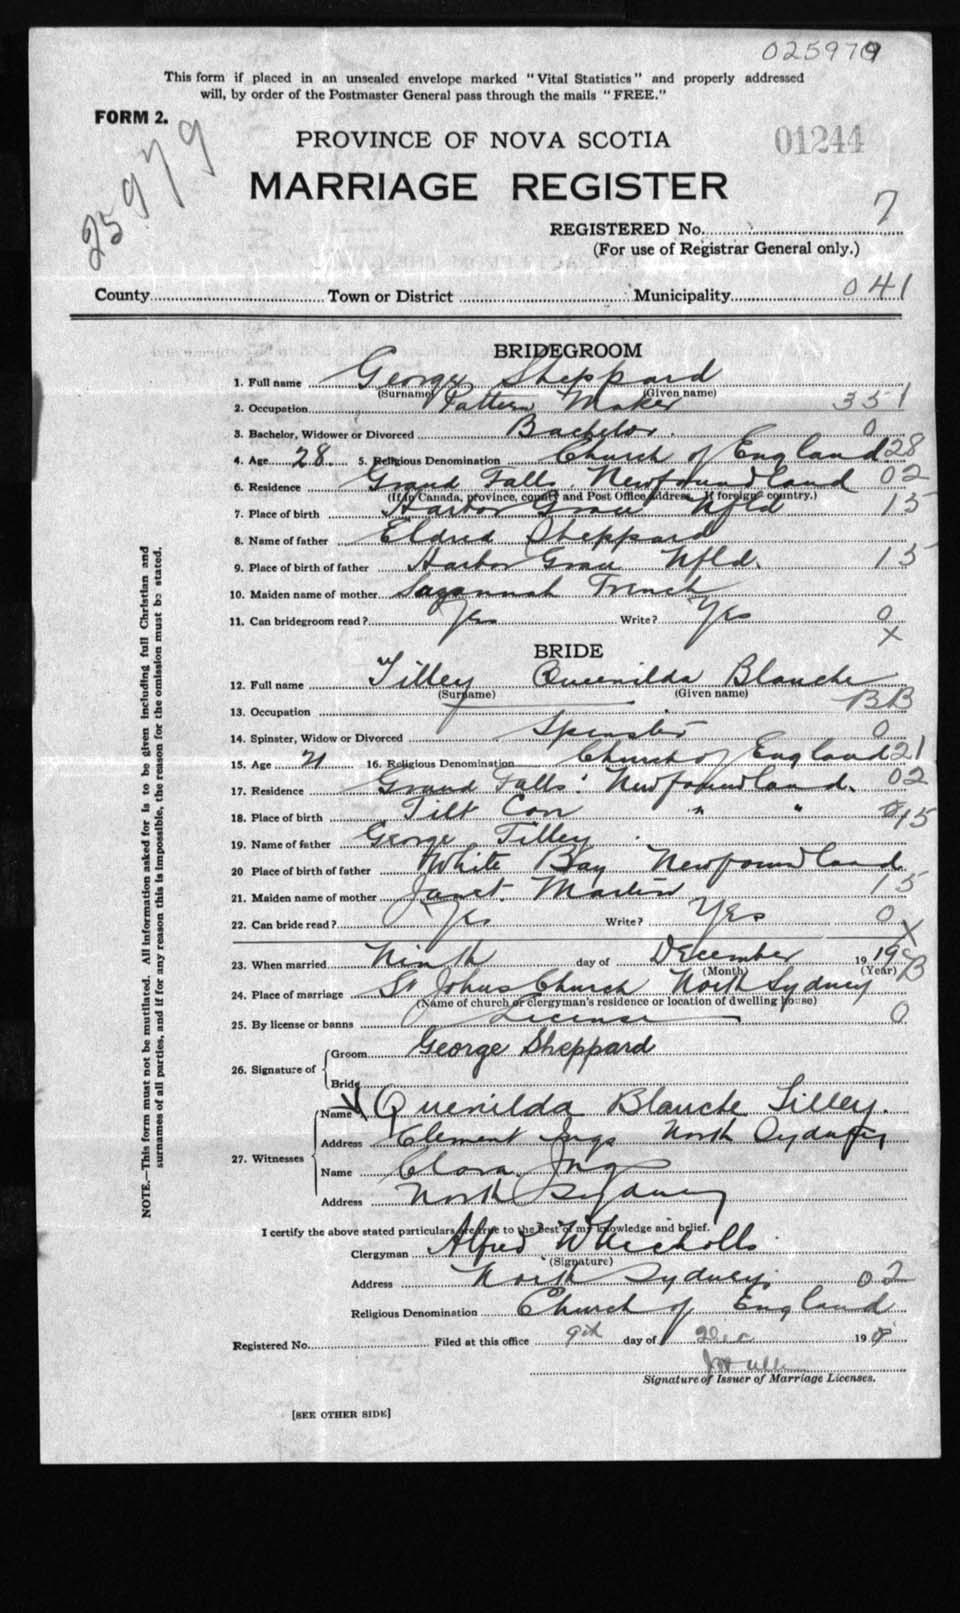 025979
This form if placed in an unsealed envelope marked "Vital Statistics" and properly addressed
will, by order of the Postmaster General pass through the mails "FREE."
FORM 2.
25979
PROVINCE OF NOVA SCOTIA
01244
MARRIAGE REGISTER
REGISTERED No. 7
(For use of Registrar General only.)
County Town or District Municipality 041
BRIDEGROOM
1. Full name George Sheppard
(Surname) (Given name)
2. Occupation Pattern Maker 351
3. Bachelor, Widower or Divorced Bachelor. 0
4. Age 28. 5. Religious Denomination Church of England 28
6. Residence Grand Falls Newfoundland 02
(If in Canada, province, county and Post Office address. If foreign country.)
7. Place of birth Harbor Grace Nfld 15
8. Name of father Eldred Sheppard
9. Place of birth of father Harbor Grace Nfld. 15
10. Maiden name of mother Sazannah French
11. Can bridegroom read? Yes Write? Yes 0
X
BRIDE
12. Full name Tilley Quenilda Blanche
(Surname) (Given name)
13. Occupation BB
14. Spinster, Widow or Divorced Spinster 0
15. Age 21 16. Religious Denomination Church of England 21
17. Residence Grand Falls. Newfoundland. 02
18. Place of birth Tilt Cov " " 15
19. Name of father George Tilley
20 Place of birth of father White Bay Newfoundland
21. Maiden name of mother Janet. Martin 15
22. Can bride read? Yes Write? Yes 0
X
23. When married Ninth day of December 19 19
(Month) (Year) B
24. Place of marriage St Johns Church North Sydney
(Name of church or clergyman's residence or location of dwelling house)
25. By license or banns License 0
26. Signature of Groom George Sheppard
Bride
27. Witnesses Name Quenilda Blanche Tilley.
Address Clement Ings North Sydney
Name Clara Ings
Address North Sydney
I certify the above stated particulars are true to the best of my knowledge and belief.
Clergyman Alfred W Nicholls
(Signature)
Address North Sydney. 02
Religious Denomination Church of England
Registered No. Filed at this office 9th day of Dec 19
Signature of Issuer of Marriage Licenses.
[SEE OTHER SIDE]
NOTE.—This form must not be mutilated. All information asked for is to be given including full Christian and
surnames of all parties, and if for any reason this is impossible, the reason for the omission must be stated.